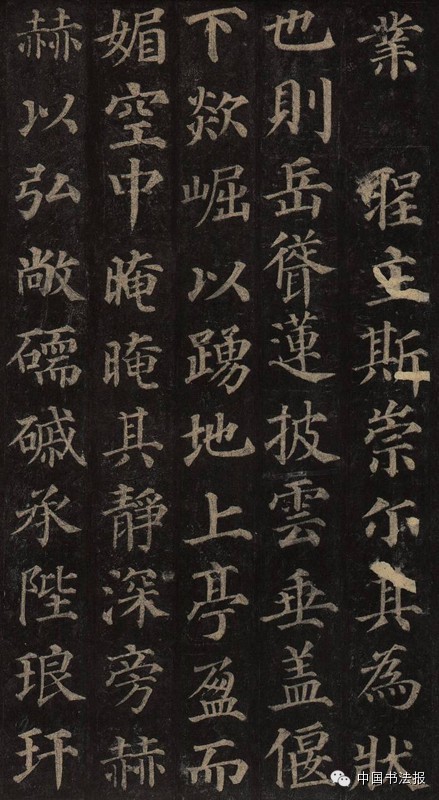 業 聖主斯崇尔其為狀
也則岳聳蓮披雲垂蓋偃
下欻崛以踴地上亭盈而
媚空中晻晻其靜深旁赫
赫以弘敞礝磩承陛琅玕
中国书法报